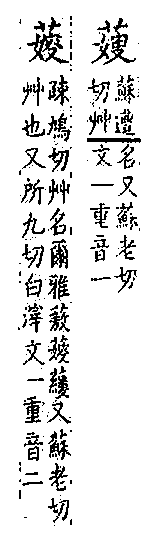 蓃
蘇遭
切艸
名又蘇老切
文一重音一
疎鳩切艸名爾雅蔜又蘇老切
艸也又所九切白滓文一重音二